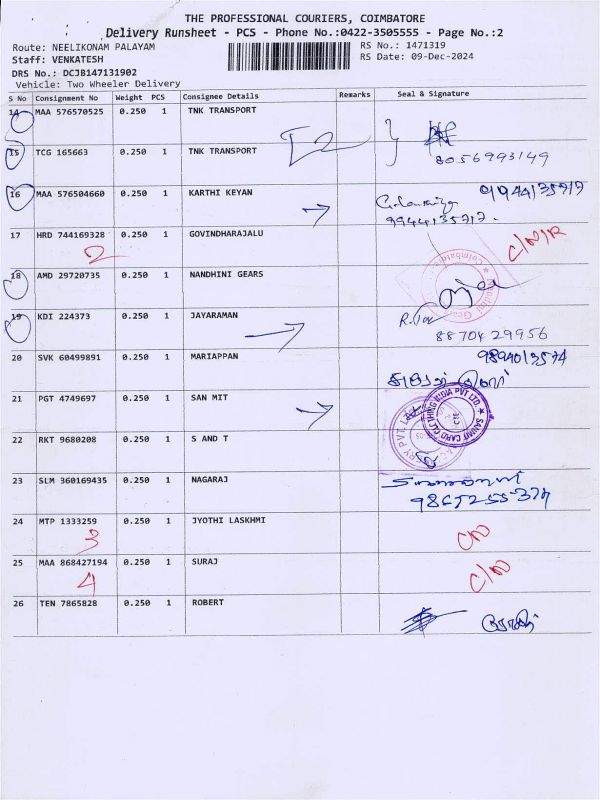 THE PROFESSIONAL COURIERS, COIMBATORE
Delivery Runsheet - PCS - Phone No.:0422-3505555 - Page No.:2
Route: NEELIKONAM PALAYAM RS No.: 1471319
Staff: VENKATESH RS Date: 09-Dec-2024
DRS No.: DCJB147131902
Vehicle: Two Wheeler Delivery
S No Consignment No Weight PCS Consignee Details Remarks Seal & Signature
14 MAA 576570525 0.250 1 TNK TRANSPORT
15 TCG 165663 0.250 1 TNK TRANSPORT 8056993149
16 MAA 576504660 0.250 1 KARTHI KEYAN 9944135717
9944135717.
17 HRD 744169328 0.250 1 GOVINDHARAJALU C/N/R
2
18 AMD 29720735 0.250 1 NANDHINI GEARS
19 KDI 224373 0.250 1 JAYARAMAN
8870429956
20 SVK 60499891 0.250 1 MARIAPPAN 9894013574
21 PGT 4749697 0.250 1 SAN MIT
22 RKT 9680208 0.250 1 S AND T
23 SLM 360169435 0.250 1 NAGARAJ
24 MTP 1333259 0.250 1 JYOTHI LASKHMI
3
25 MAA 868427194 0.250 1 SURAJ C/N
4
26 TEN 7865828 0.250 1 ROBERT